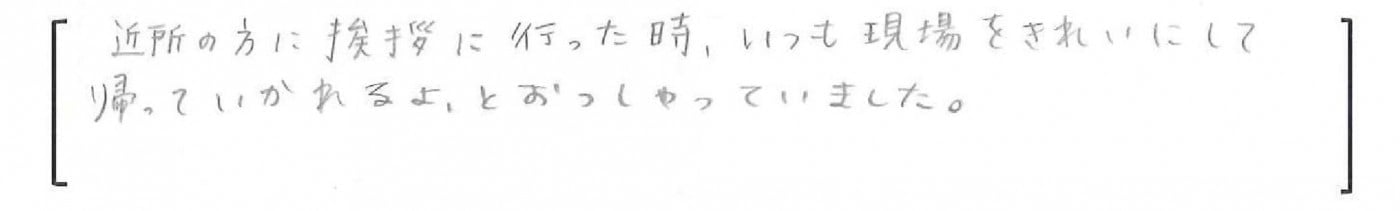 近所の方に挨拶に行った時、いつも現場をきれいにして
帰っていかれるよ、とおっしゃっていました。